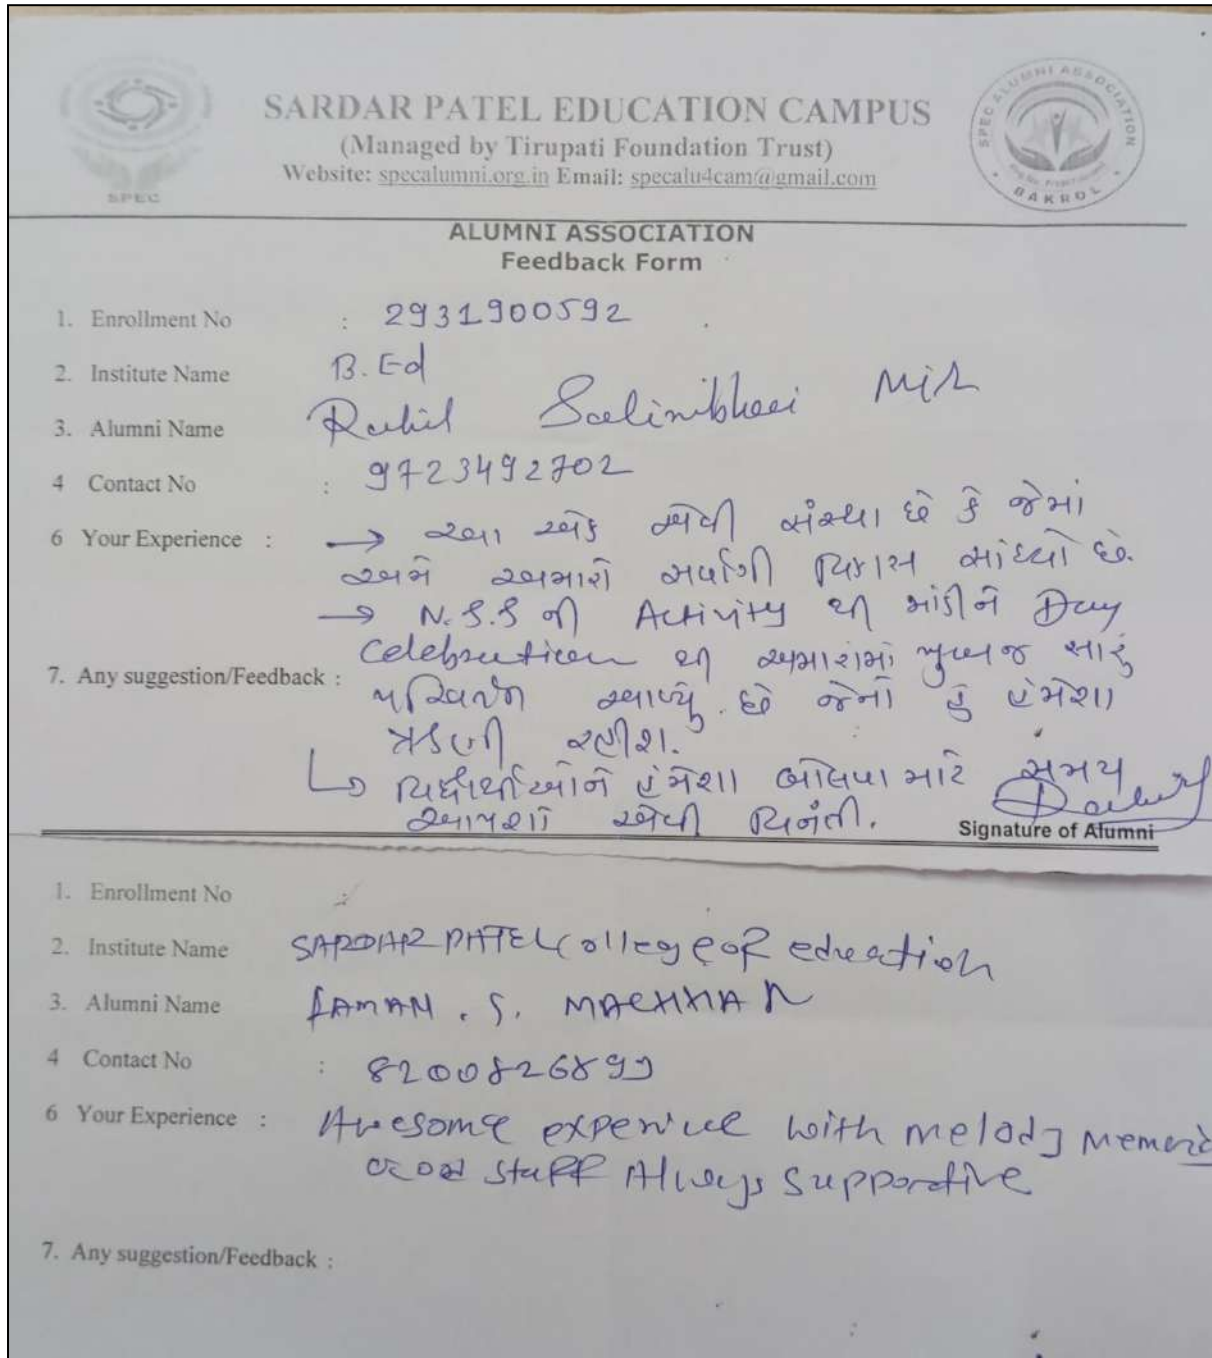 SPEC
SARDAR PATEL EDUCATION CAMPUS
(Managed by Tirupati Foundation Trust)
Website: specalumni.org.in Email: specalu4cam@gmail.com
SPEC ALUMNI ASSOCIATION
BAKROL
ALUMNI ASSOCIATION
Feedback Form
1. Enrollment No : 2931900592
2. Institute Name B.Ed
3. Alumni Name Rahil Salimbhai Mir
4 Contact No : 9723492702
6 Your Experience : → આ એક એવી સંસ્થા છે કે જેમાં
અમે અમારો સર્વાંગી વિકાસ સાંધ્યો છે.
→ N.S.S ની Activity થી માંડીને Day
Celebration થી અમારામાં ખુબ જ સારું
7. Any suggestion/Feedback :
આપ્યું છે જેનો હું હંમેશા
ઋણી રહીશ.
વિદ્યાર્થીઓને હંમેશા બોલવા માટે સમય
આપશો એવી વિનંતી.
Signature of Alumni
1. Enrollment No :
2. Institute Name SARDAR PATEL College of education
3. Alumni Name S. MACHHAR
4 Contact No : 8200826899
6 Your Experience : Awesome with melody
Good staff Always Supportive
7. Any suggestion/Feedback :